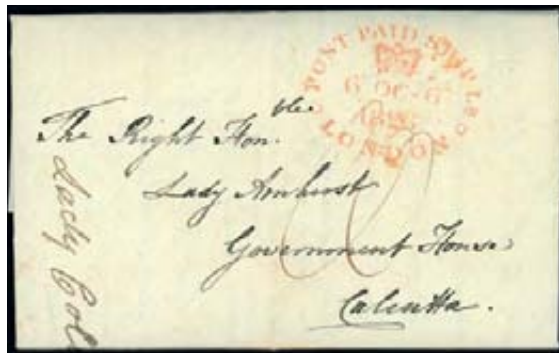 POST PAID SHIP L
6 OC 6
LONDON
The Right Hon.ble
Lady Amherst
Government House
Calcutta.
Lady Col